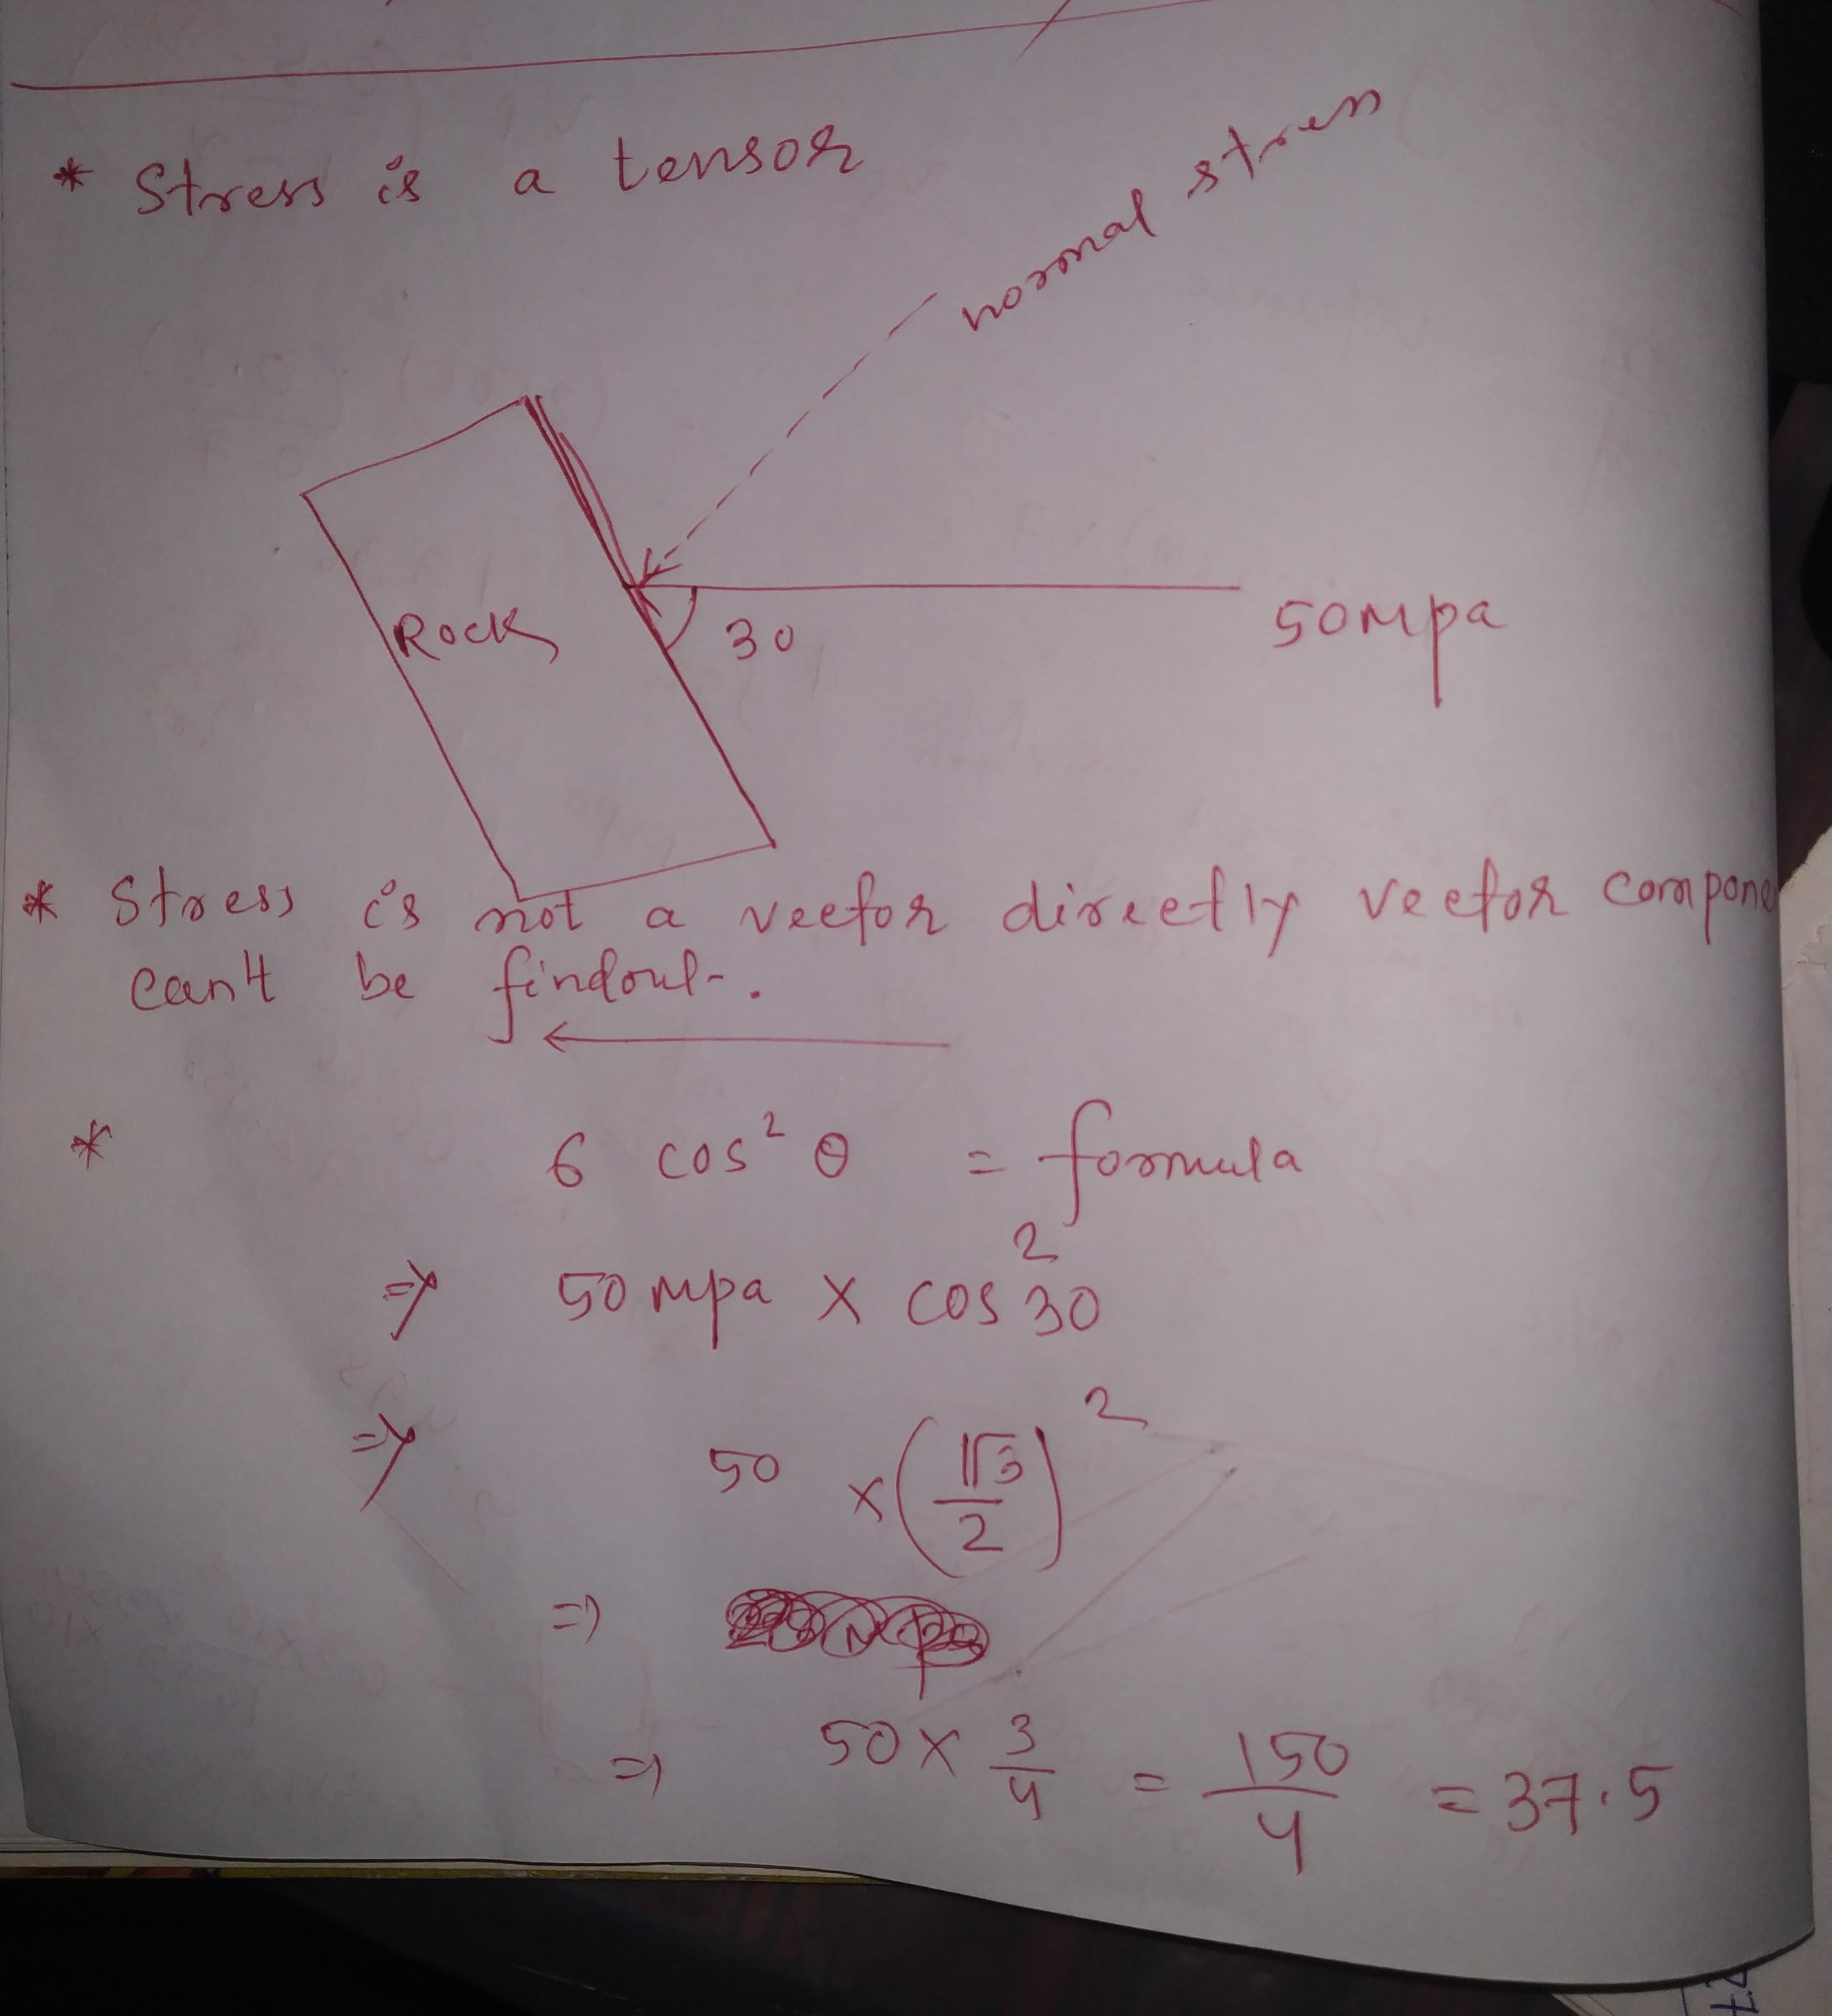 * Stress is a tensor
normal stress
Rock
30
50Mpa
* Stress is not a vector directly vector compone
can't be findout.
* 6 cos² θ = formula
⇒ 50 mpa × cos² 30
⇒ 50 × (√3/2)²
⇒
⇒ 50 × 3/4 = 150/4 = 37.5